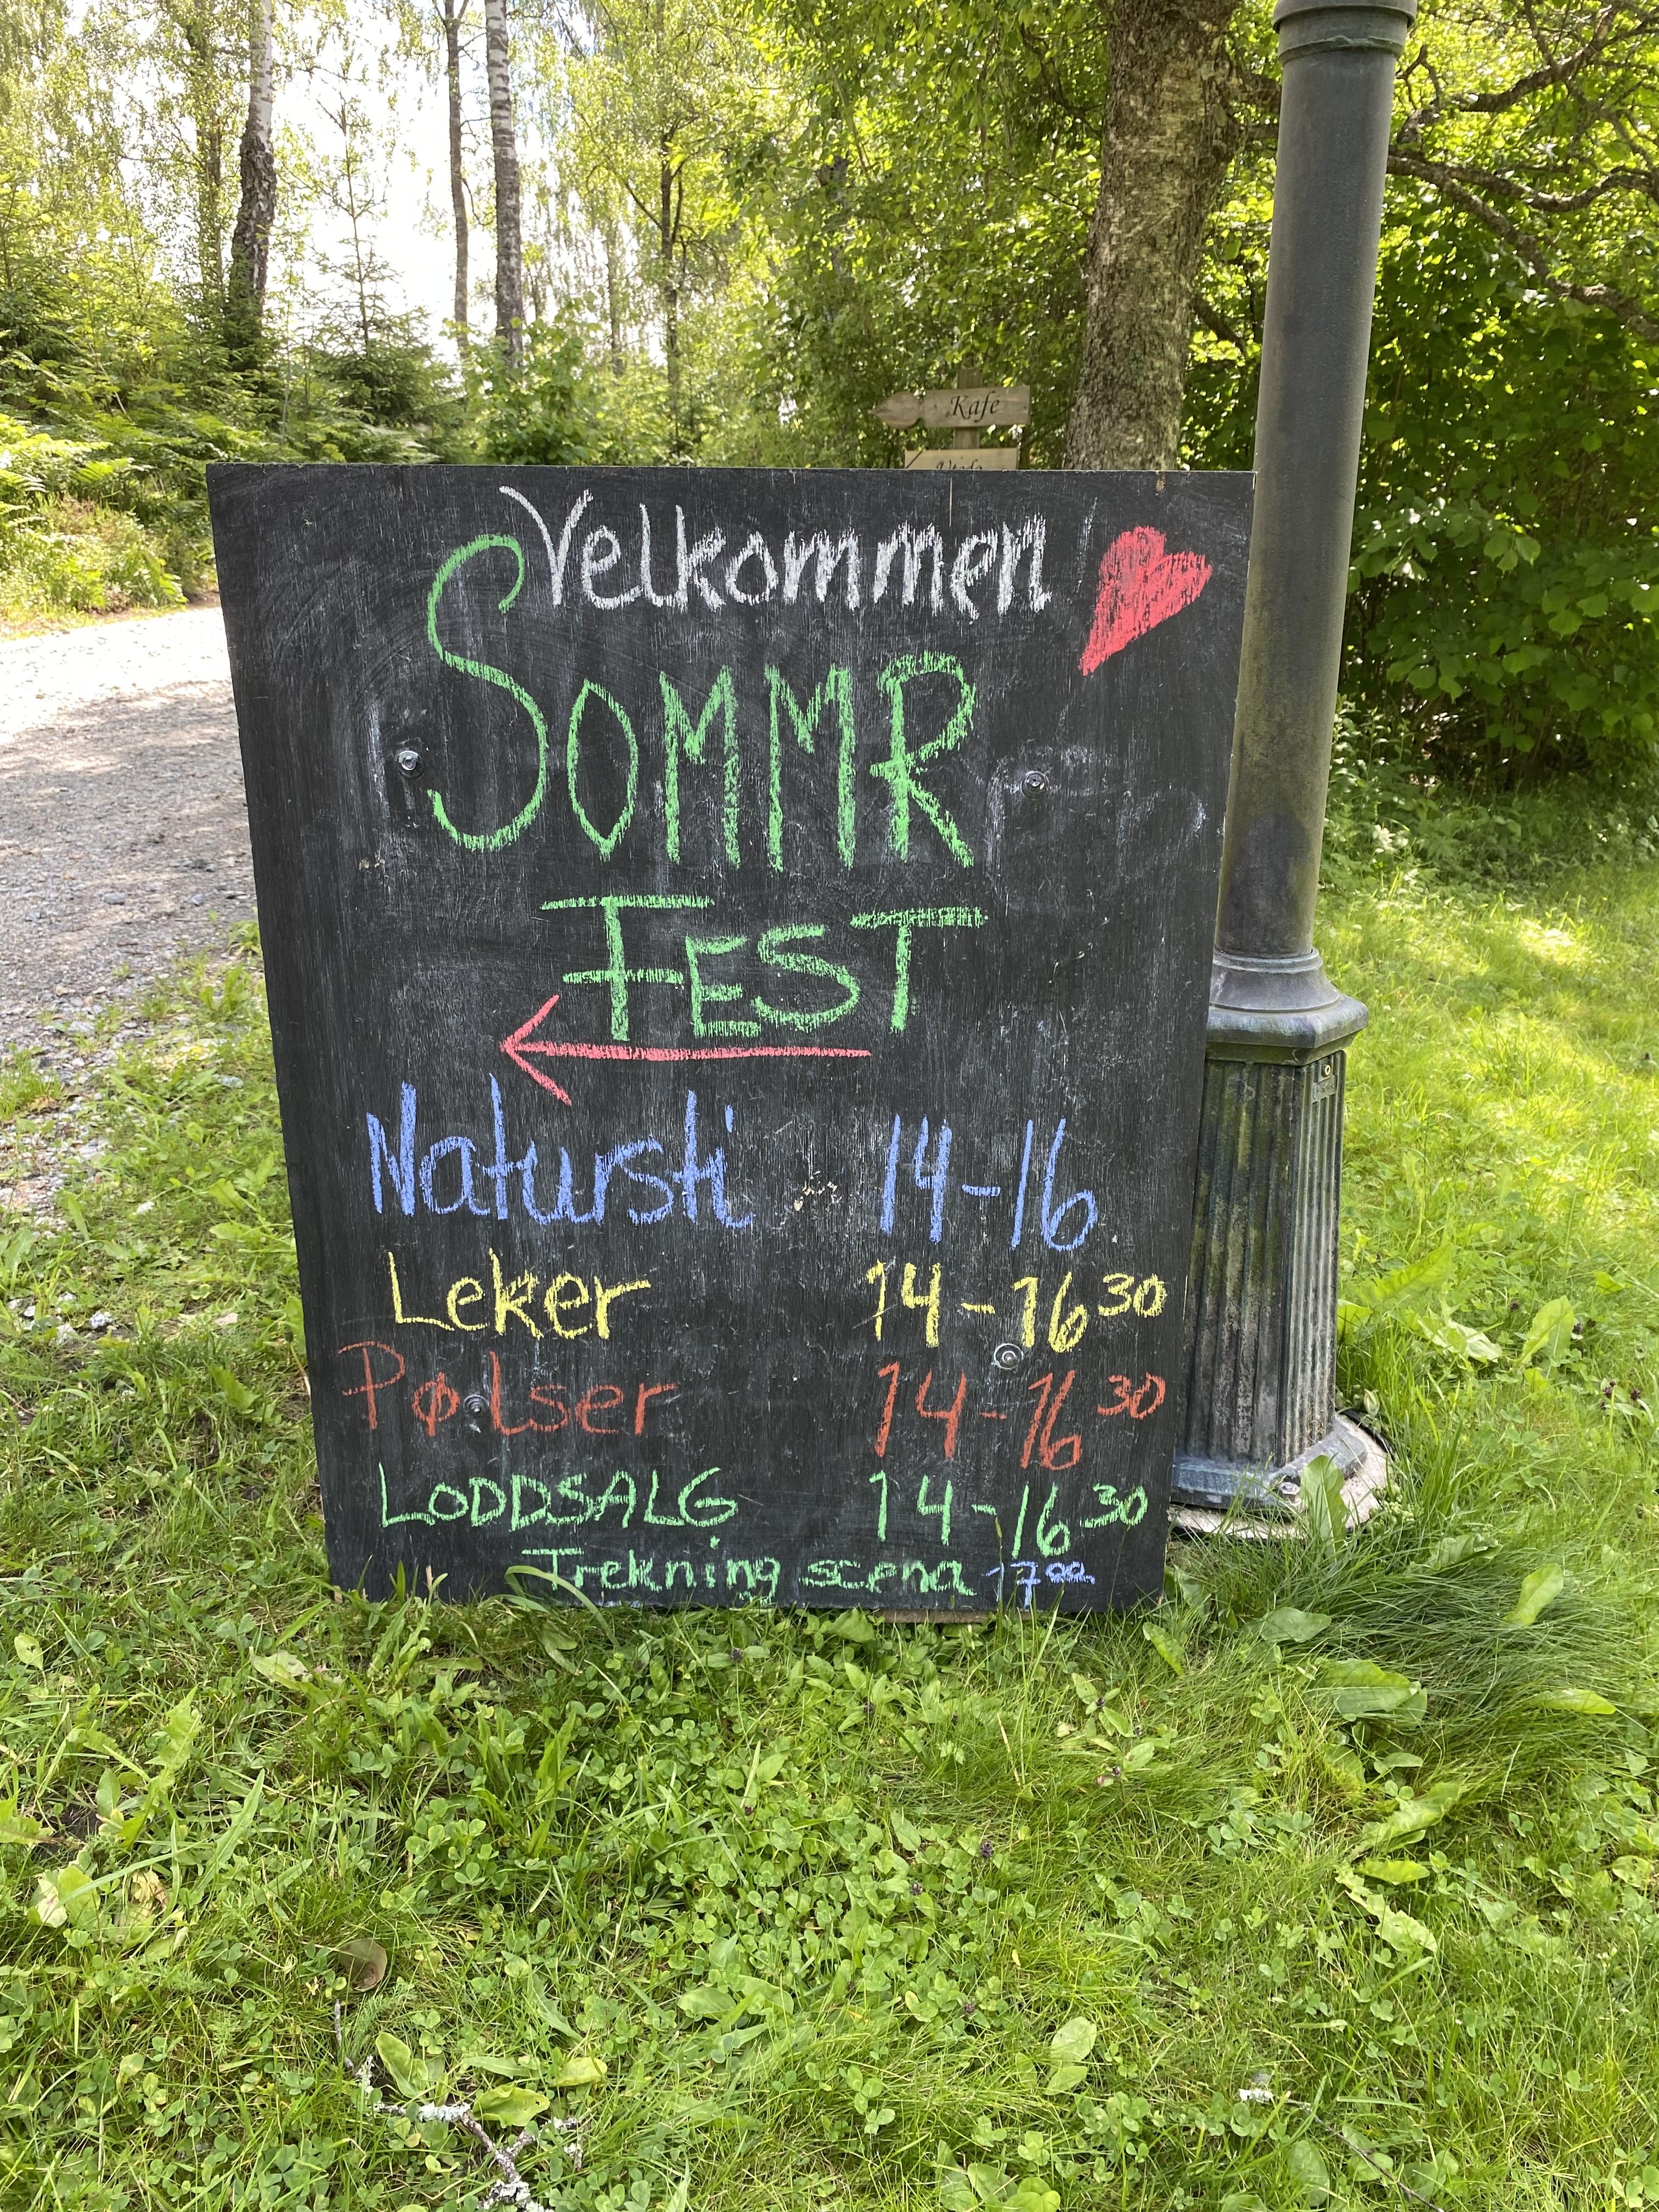 Kafe
Velkommen
SOMMR
FEST
Natursti 14-16
Leker 14-16 30
Pølser 14-16 30
LODDSALG 14-16 30
Trekning scena 17 00